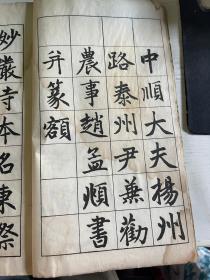 中順大夫楊州
路泰州尹蒹勸
農事趙孟頫書
并篆額
妙嚴寺本名東際